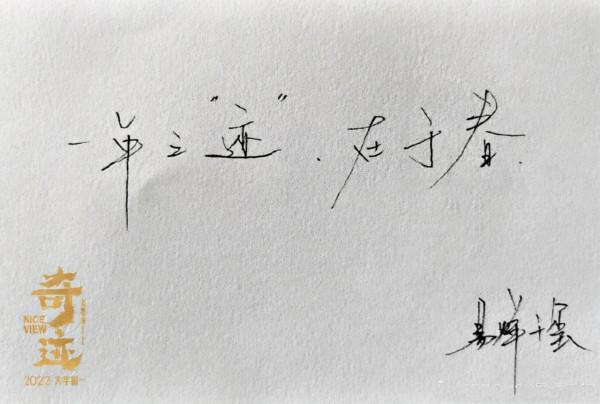 一年之“迹”,在于春.
易烊千玺
奇
NICE
VIEW
迹
2022 大年初一